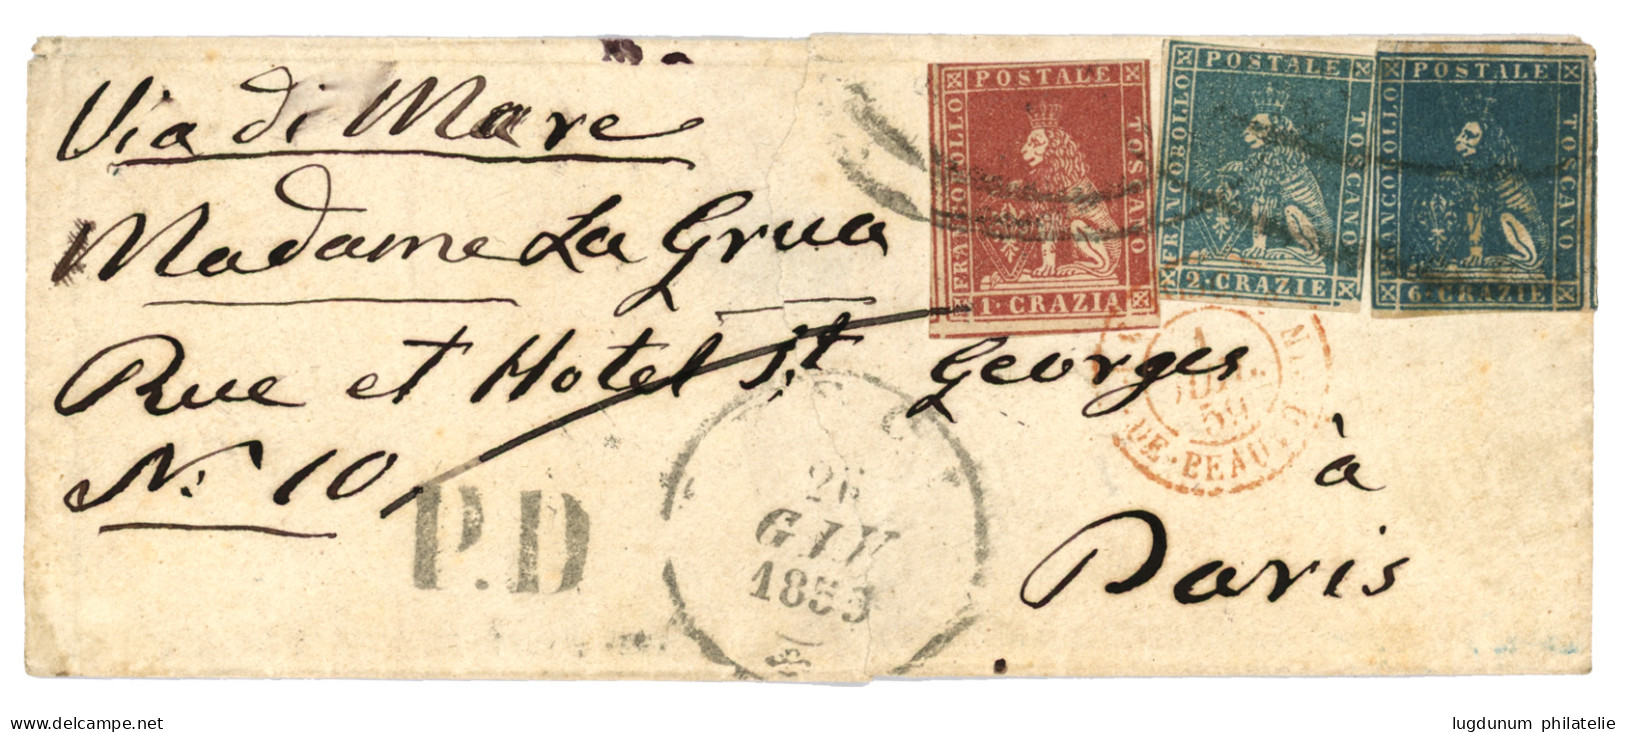 Via di Mare
Madame La Grua
Rue et Hotel St Georges
N: 10
à
Paris
P.D
26
GIU
1853
POSTALE
FRANCOBOLLO
TOSCANO
1·CRAZIA
POSTALE
FRANCOBOLLO
TOSCANO
2·CRAZIE
POSTALE
FRANCOBOLLO
TOSCANO
6·CRAZIE
1
JUIL.
DE-BEAUV.
www.delcampe.net
lugdunum philatelie